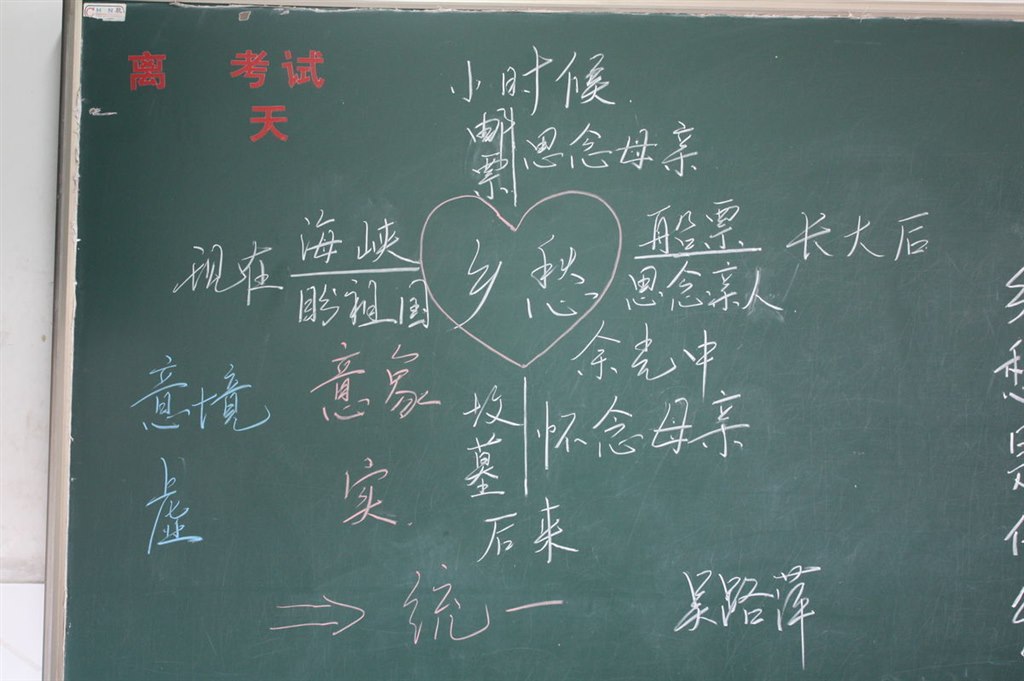 离 考试
天
小时候
邮票 思念母亲
现在 海峡 乡愁 船票 长大后
盼祖国 思念亲人
余光中
意境 意象
坟墓 怀念母亲
虚 实
后来
⇒ 统一
吴路萍
乡
愁